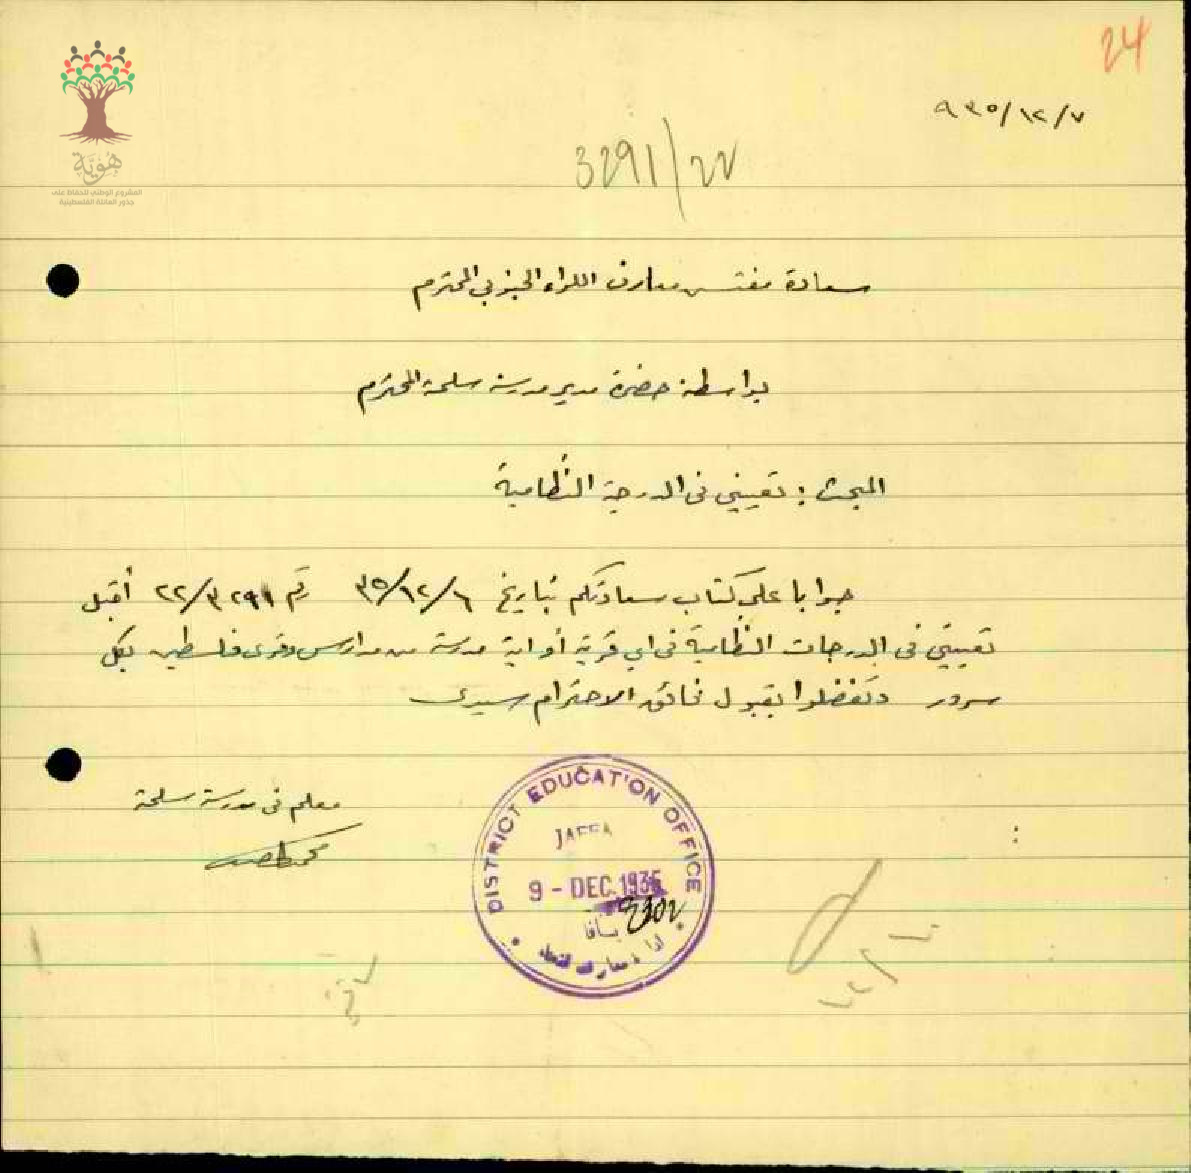 24
٩٣٥/١٢/٧
3291/22
هوية
المشروع الوطني للحفاظ على
جذور العائلة الفلسطينية
سعادة مفتش معارف اللواء الجنوبي المحترم
بواسطة حضرة مدير مدرسة سلمة المحترم
المبحث : تعييني في الدرجة النظامية
جوابا على كتاب سعادتكم بتاريخ ٣٥/١٢/٦ رقم ٢٢/٣٢٩١ أقبل
تعييني في الدرجات النظامية في اي قرية أو اية مدرسة من مدارس وقرى فلسطين بكل
سرور وتفضلوا بقبول فائق الاحترام سيدي
معلم في مدرسة سلمة
DISTRICT EDUCATION OFFICE
JAFFA
9 - DEC. 1935
يافا